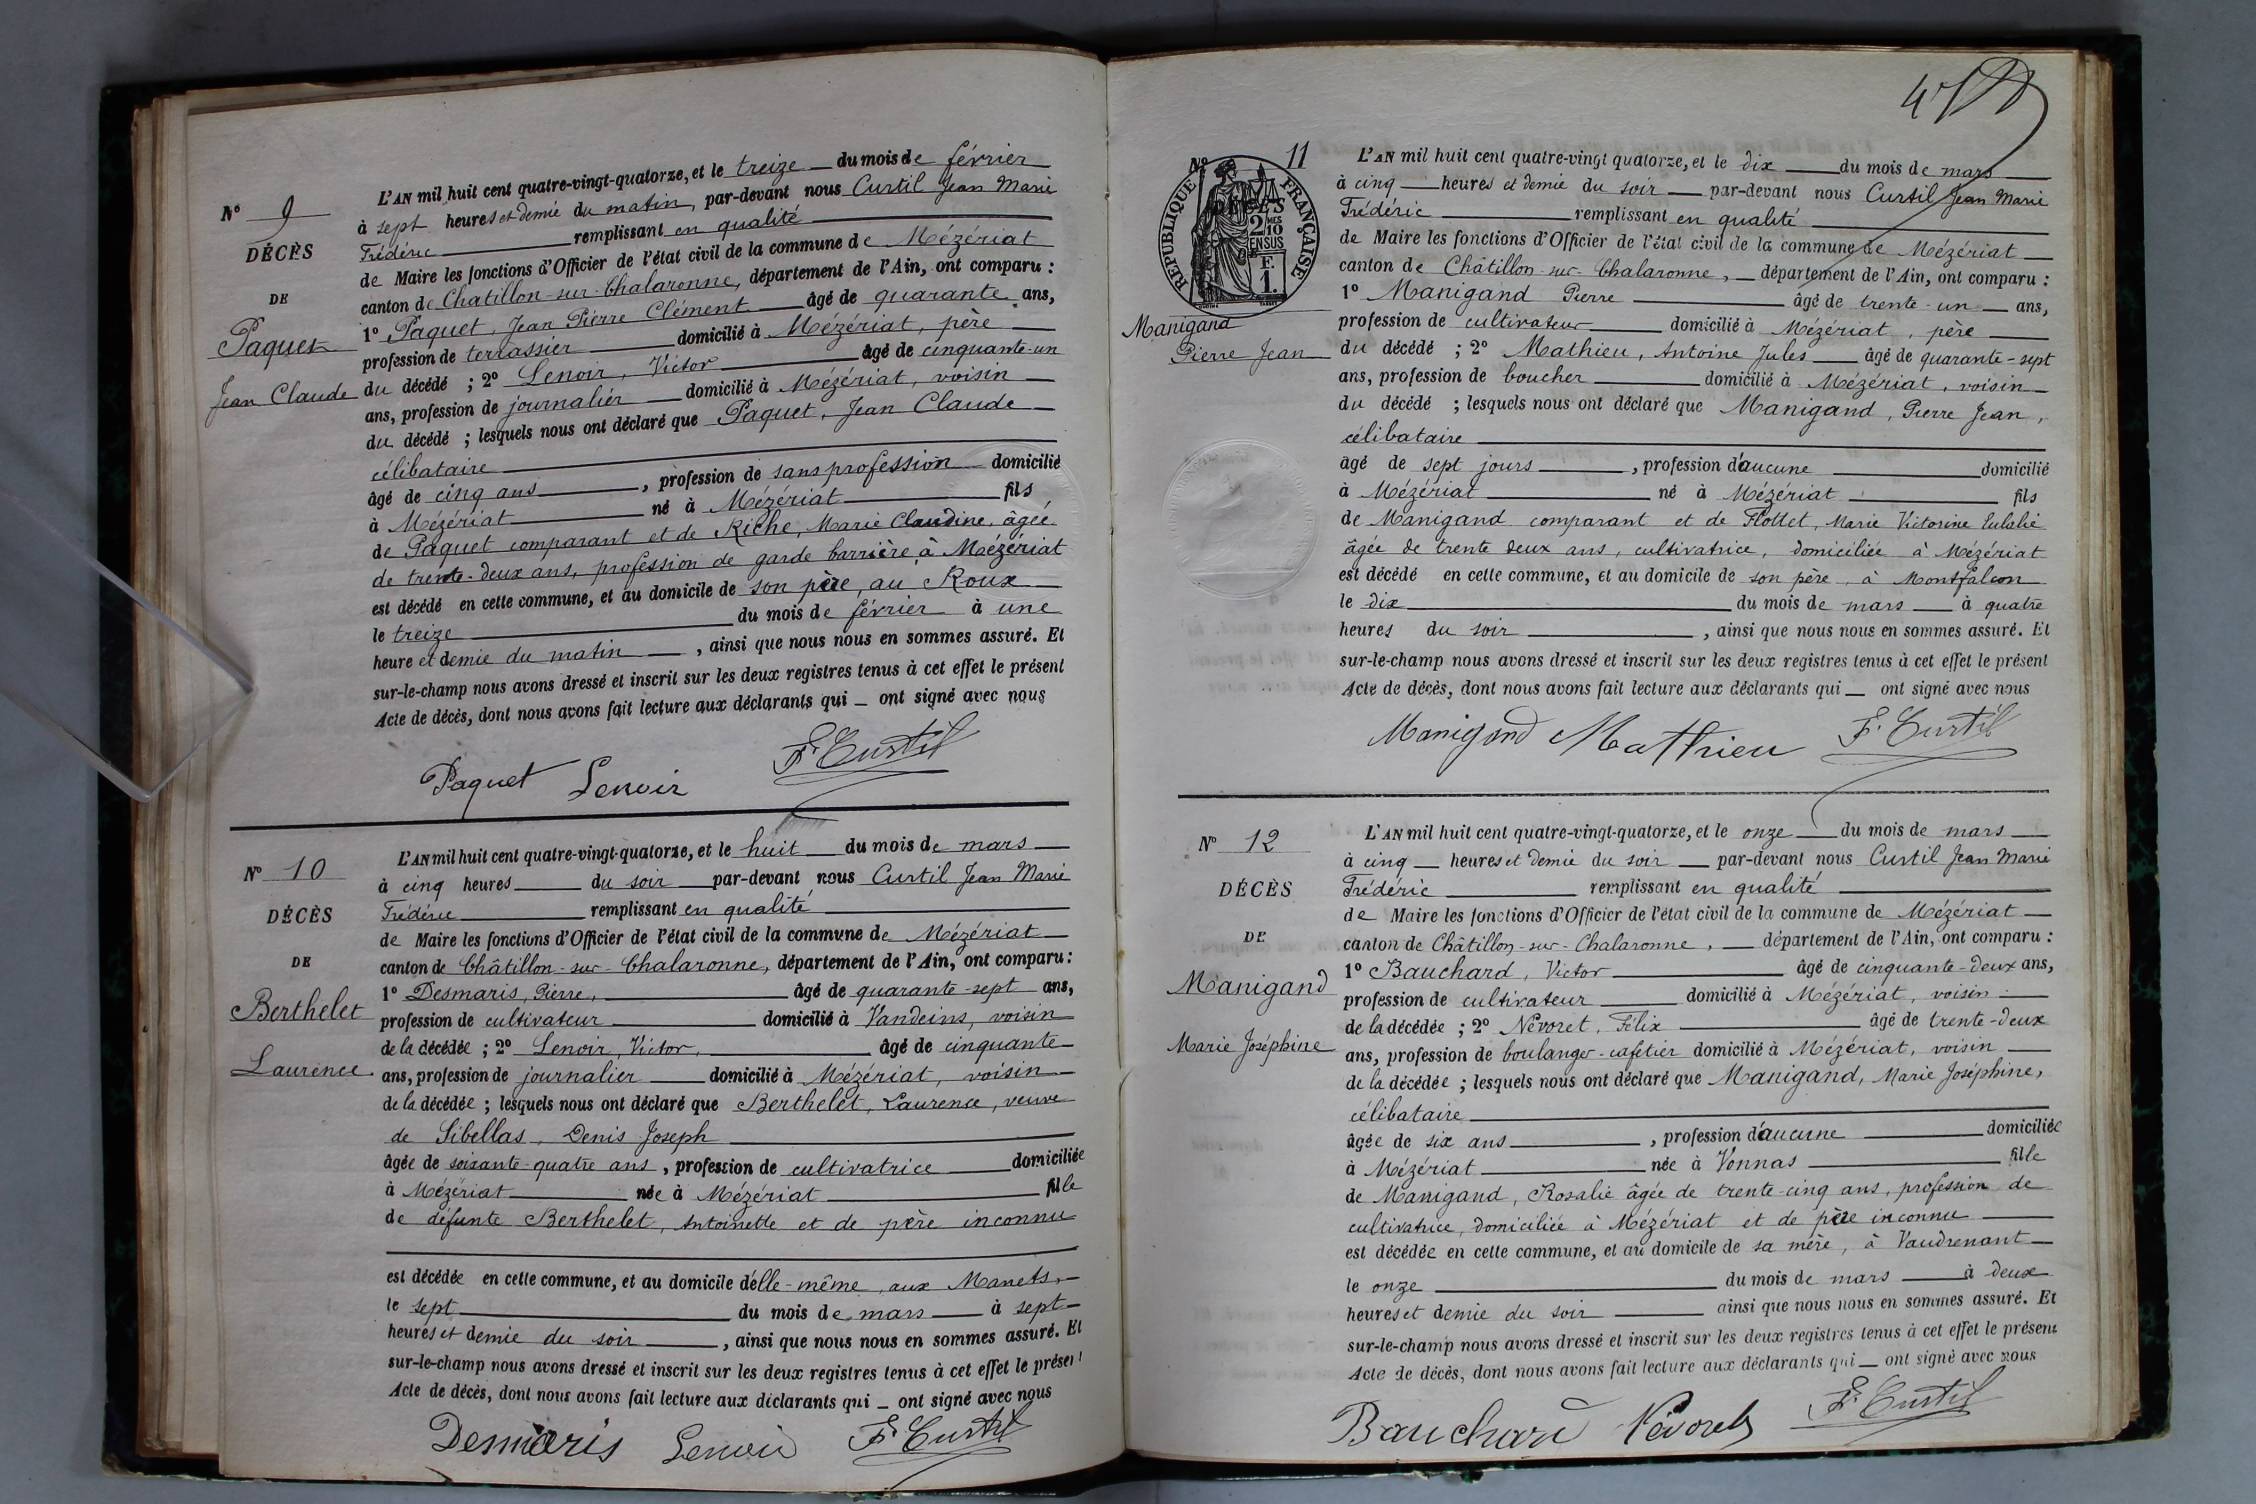 L'AN mil huit cent quatre-vingt-quatorze, et le treize du mois de février
à sept heures et demie du matin, par-devant nous Curtil Jean Marie
Frédéric remplissant en qualité
de Maire les fonctions d'Officier de l'état civil de la commune de Mézériat
canton de Chatillon-sur-Chalaronne, département de l'Ain, ont comparu :
1º Paquet, Jean Pierre Clément âgé de quarante ans,
profession de terrassier domicilié à Mézériat, père
du décédé ; 2º Lenoir, Victor âgé de cinquante-un
ans, profession de journalier domicilié à Mézériat, voisin
du décédé ; lesquels nous ont déclaré que Paquet, Jean Claude
célibataire
âgé de cinq ans, profession de sans profession domicilié
à Mézériat né à Mézériat fils
de Paquet comparant et de Riche, Marie Claudine, âgée
de trente-deux ans, profession de garde barrière, à Mézériat
est décédé en cette commune, et au domicile de son père, au Roux
le treize du mois de février à une
heure et demie du matin, ainsi que nous nous en sommes assuré. Et
sur-le-champ nous avons dressé et inscrit sur les deux registres tenus à cet effet le présent
Acte de décès, dont nous avons fait lecture aux déclarants qui ont signé avec nous
Paquet Lenoir F. Curtil
Nº 9
DÉCÈS
DE
Paquet
Jean Claude
L'AN mil huit cent quatre-vingt-quatorze, et le huit du mois de mars
à cinq heures du soir par-devant nous Curtil Jean Marie
Frédéric remplissant en qualité
de Maire les fonctions d'Officier de l'état civil de la commune de Mézériat
canton de Châtillon-sur-Chalaronne, département de l'Ain, ont comparu :
1º Desmaris, Pierre, âgé de quarante-sept ans,
profession de cultivateur domicilié à Vandeins, voisin
de la décédée ; 2º Lenoir, Victor, âgé de cinquante
ans, profession de journalier domicilié à Mézériat, voisin
de la décédée ; lesquels nous ont déclaré que Berthelet, Laurence, veuve
de Sibellas, Denis Joseph
âgée de soixante-quatre ans, profession de cultivatrice domiciliée
à Mézériat née à Mézériat fille
de défunte Berthelet, Antoinette et de père inconnu
est décédée en cette commune, et au domicile d'elle-même, aux Manets,
le sept du mois de mars à sept
heures et demie du soir, ainsi que nous nous en sommes assuré. Et
sur-le-champ nous avons dressé et inscrit sur les deux registres tenus à cet effet le présent
Acte de décès, dont nous avons fait lecture aux déclarants qui ont signé avec nous
Desmaris Lenoir F. Curtil
Nº 10
DÉCÈS
DE
Berthelet
Laurence
Nº 11
RÉPUBLIQUE FRANÇAISE
2 MES
10
EN SUS
F.
1.
Manigand
Pierre Jean
L'AN mil huit cent quatre-vingt quatorze, et le dix du mois de mars
à cinq heures et demie du soir par-devant nous Curtil Jean Marie
Frédéric remplissant en qualité
de Maire les fonctions d'Officier de l'état civil de la commune de Mézériat
canton de Châtillon-sur-Chalaronne, département de l'Ain, ont comparu :
1º Manigand Pierre âgé de trente-un ans,
profession de cultivateur domicilié à Mézériat, père
du décédé ; 2º Mathieu, Antoine Jules âgé de quarante-sept
ans, profession de boucher domicilié à Mézériat, voisin
du décédé ; lesquels nous ont déclaré que Manigand, Pierre Jean,
célibataire
âgé de sept jours, profession d'aucune domicilié
à Mézériat né à Mézériat fils
de Manigand comparant et de Flottet, Marie Victorine Eulalie
âgée de trente deux ans, cultivatrice, domiciliée à Mézériat
est décédé en cette commune, et au domicile de son père, à Montfalcon
le dix du mois de mars à quatre
heures du soir, ainsi que nous nous en sommes assuré. Et
sur-le-champ nous avons dressé et inscrit sur les deux registres tenus à cet effet le présent
Acte de décès, dont nous avons fait lecture aux déclarants qui ont signé avec nous
Manigand Mathieu F. Curtil
Nº 12
DÉCÈS
DE
Manigand
Marie Joséphine
L'AN mil huit cent quatre-vingt-quatorze, et le onze du mois de mars
à cinq heures et demie du soir par-devant nous Curtil Jean Marie
Frédéric remplissant en qualité
de Maire les fonctions d'Officier de l'état civil de la commune de Mézériat
canton de Châtillon-sur-Chalaronne, département de l'Ain, ont comparu :
1º Bauchard, Victor âgé de cinquante-deux ans,
profession de cultivateur domicilié à Mézériat, voisin
de la décédée ; 2º Névoret, Félix âgé de trente-deux
ans, profession de boulanger-cafetier domicilié à Mézériat, voisin
de la décédée ; lesquels nous ont déclaré que Manigand, Marie Joséphine,
célibataire
âgée de six ans, profession d'aucune domiciliée
à Mézériat née à Vonnas fille
de Manigand, Rosalie âgée de trente-cinq ans, profession de
cultivatrice, domiciliée à Mézériat et de père inconnu
est décédée en cette commune, et au domicile de sa mère, à Vaudrenant
le onze du mois de mars à deux
heures et demie du soir ainsi que nous nous en sommes assuré. Et
sur-le-champ nous avons dressé et inscrit sur les deux registres tenus à cet effet le présent
Acte de décès, dont nous avons fait lecture aux déclarants qui ont signé avec nous
Bauchard Névoret F. Curtil